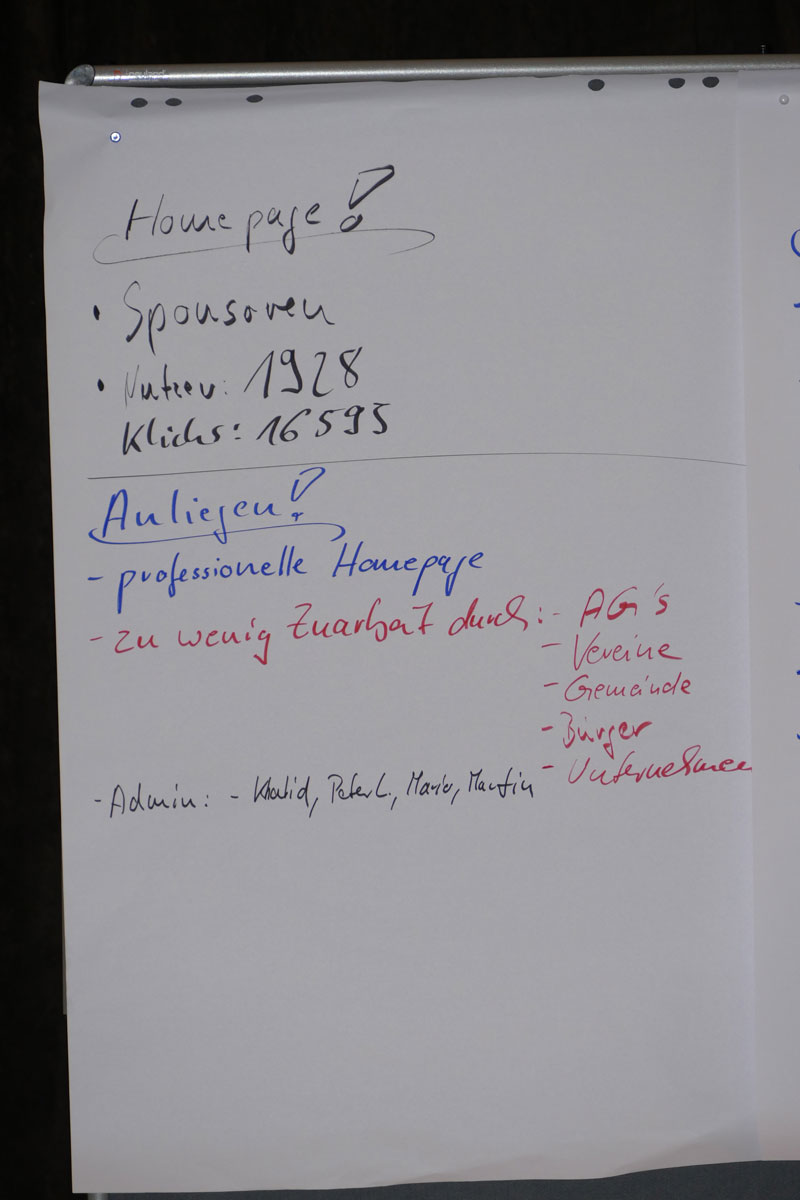 Homepage!
• Sponsoren
• Nutzer: 1928
Klicks: 16595
Anliegen!
- professionelle Homepage
- zu wenig Zuarbeit durch: - AG's
- Vereine
- Gemeinde
- Bürger
- Unternehmen
- Admin: - Khalid, Peter L., Mario, Martin